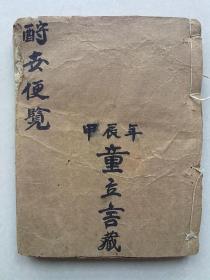 酧世便覽
甲辰年
童立言藏